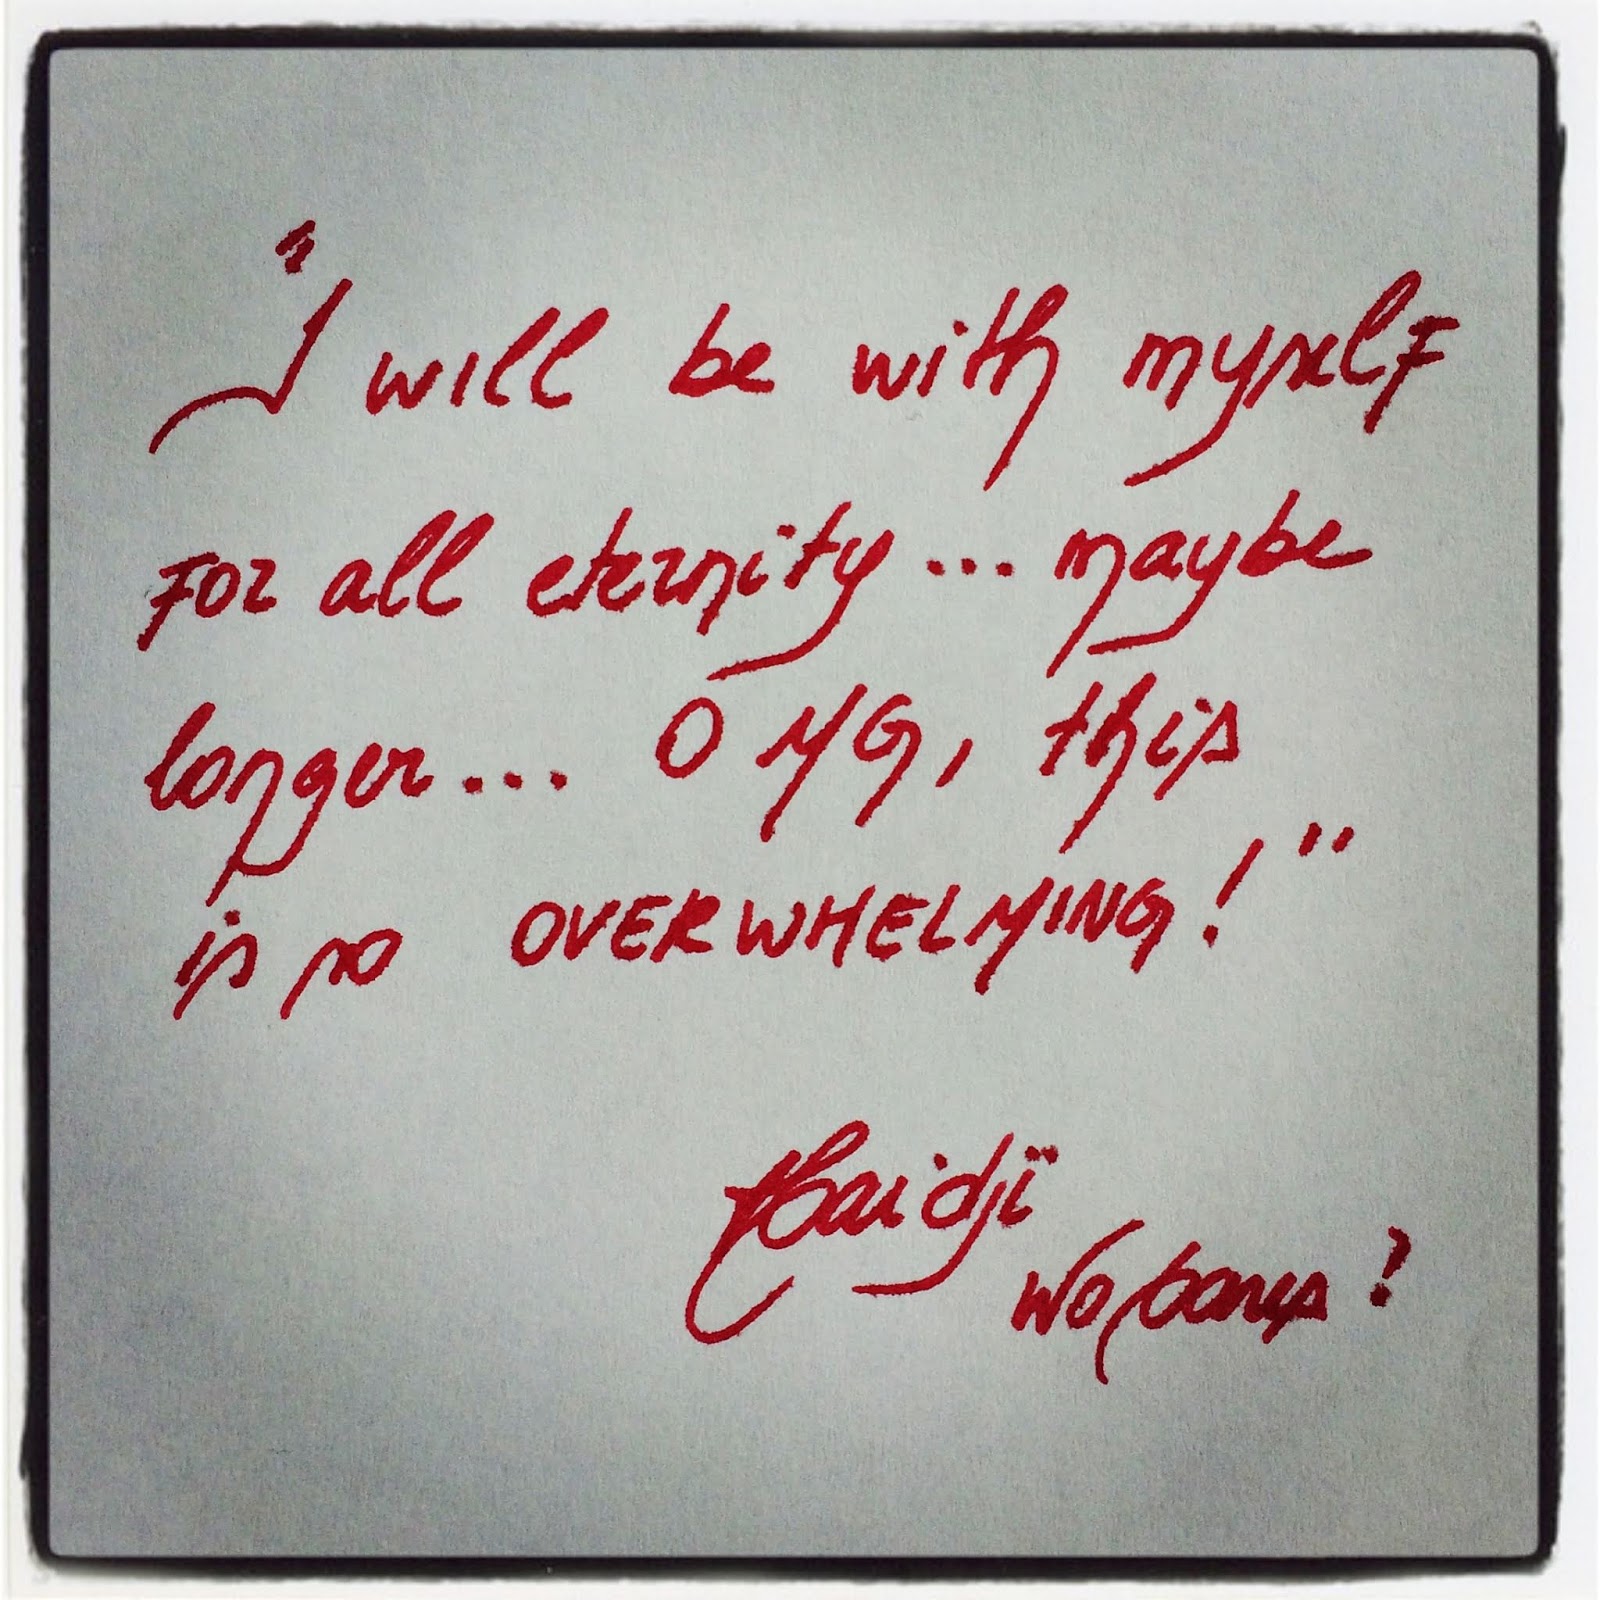 "I will be with myself
for all eternity... maybe
longer... OMG, this
is so OVERWHELMING!"
Haidji